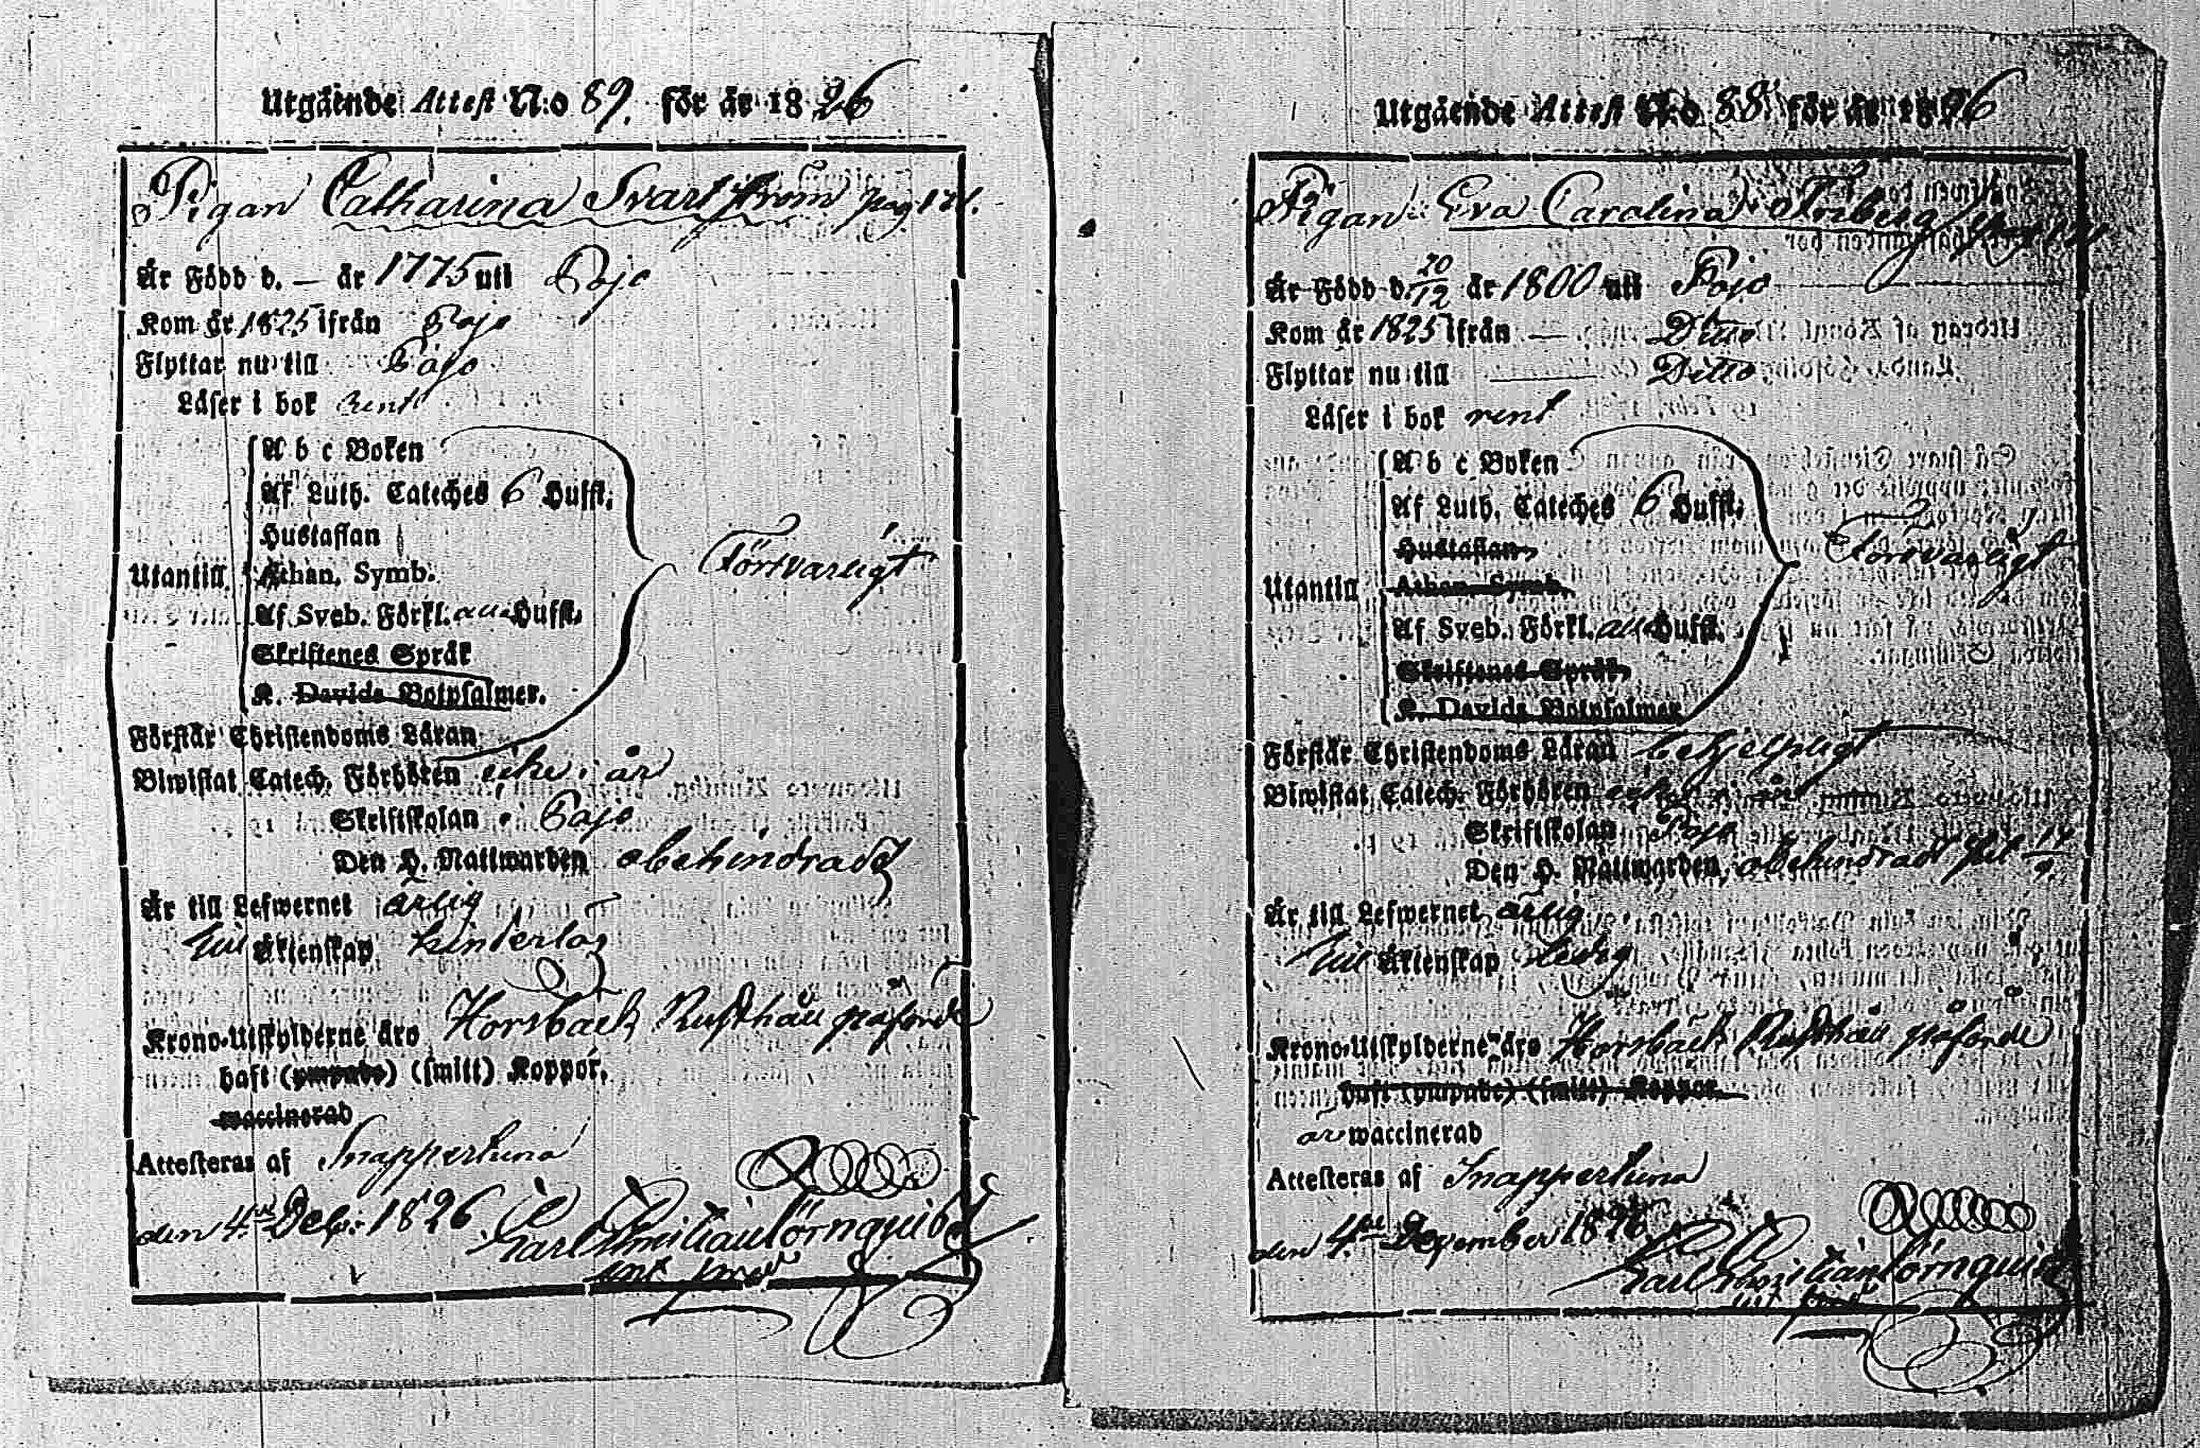 Utgående Attest N:o 89. för år 1826
Pigan Catharina Svartström pag 121.
Är Född d. — år 1775 uti Pojo
Kom år 1825 ifrån Pojo
Flyttar nu till Pojo
Läser i bok rent
A b c Boken
Af Luth. Cateches 6 Hufst.
Hustaflan
Utantill Athan. Symb. Försvarligt
Af Sveb. Förkl. alla Hufst.
Skriftenes Språk
K. Davids Botpsalmer.
Förstår Christendoms Läran
Biwistat Catech. Förhören icke i år
Skriftskolan i Pojo
Den H. Nattwarden obehindrad
Är till Lefwernet ärlig
till Äktenskap hinderlös
Krono-Utskylderne äro Horsbäck Rusthåll påförde
haft (ympade) (smitt) Koppor.
waccinerad
Attesteras af Snappertuna
den 4de Dec. 1826. Carl Törnquist
Utgående Attest N:o 88. för år 1826
Pigan Eva Carolina Friberg pag 121
Är Född d. 20/12 år 1800 uti Pojo
Kom år 1825 ifrån — Ditto
Flyttar nu till — Ditto
Läser i bok rent
A b c Boken
Af Luth. Cateches 6 Hufst.
Hustaflan
Utantill Athan. Symb. Försvarligt
Af Sveb. Förkl. alla Hufst.
Skriftenes Språk
K. Davids Botpsalmer
Förstår Christendoms Läran behjelpligt
Biwistat Catech. Förhören icke i år
Skriftskolan i Pojo
Den H. Nattwarden obehindrad
Är till Lefwernet ärlig
till Äktenskap ledig
Krono-Utskylderne äro Horsbäck Rusthåll påförde
haft (ympade) (smitt) Koppor.
är waccinerad
Attesteras af Snappertuna
den 4de December 1826. Carl Törnquist